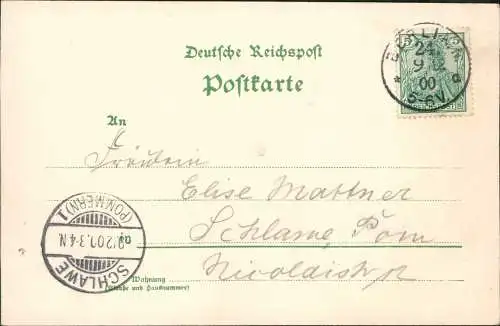 Deutsche Reichspost
Postkarte
An
Fräulein
Elise Mattner
Schlawe Pom
Nicolaistr
Wohnung
(Straße und Hausnummer)
24
9
00
5-6V.
SCHLAWE
3-4N.
(POMMERN) 1